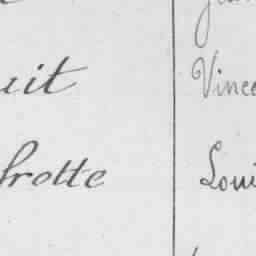 uit Vince
frotte Loui